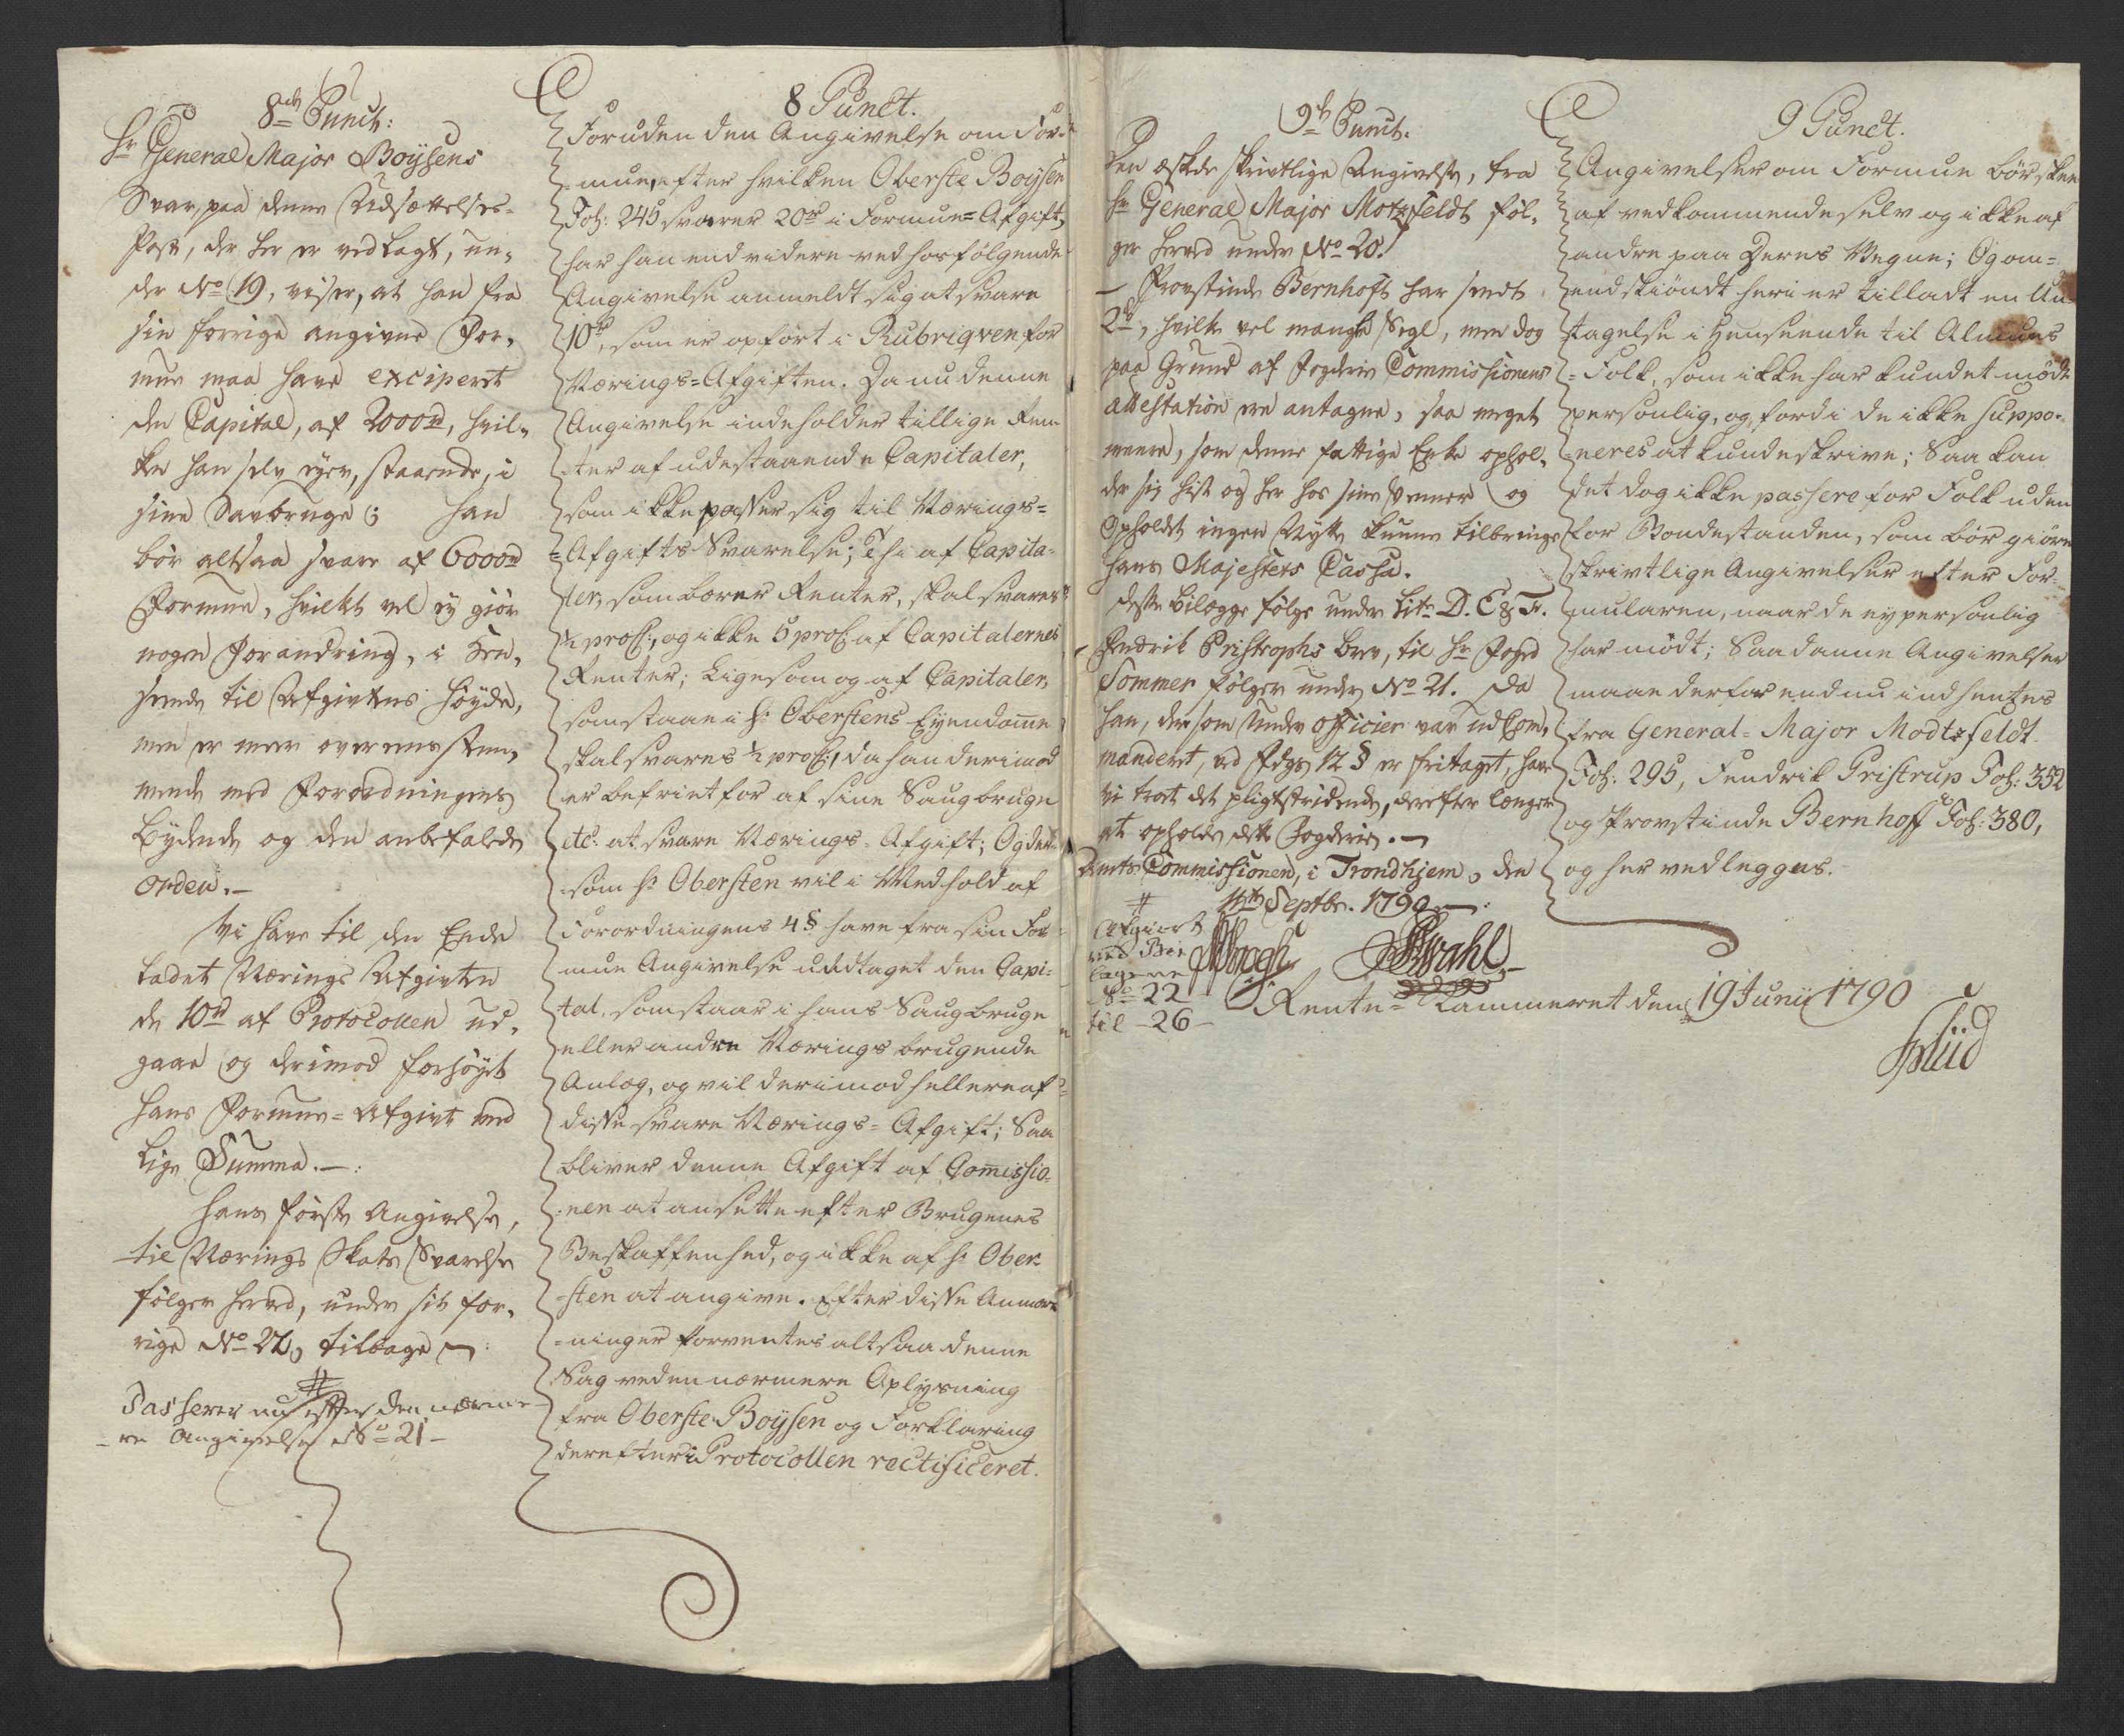 8de Punct:
Hr General Major Boijsens
Svar, paa denne Udsættelses-
Post, der her er vedlagt, un,
der No 19, viser, at han fra
sin forrige angivne For,
mue maa have exciperet
den Capital, af 2000rd, hvil,
ken han selv eyer, staaende, i
sine Saubruge; han
bør altsaa svare af 6000rd
Formue, hvilket vel ey giør
nogen Forandring, i Hen,
seende til Afgivtens Høyde,
men er meer overeenstem,
mende med Forordningens
Bydende og den anbefalede
Orden.-
Vi have til den Ende
ladet Nærings Afgivten
de 10rd af Protocollen ud,
gaae og derimod forhøyet
hans Formue-Afgivt med
lige Summa.-
Hans første Angivelse,
til Nærings Skats Svarelse
følger herved, under sit for,
rige No 22, tilbage
Passerer nu efter den nærme
re Angivelse No 21-
8 Punct.
Foruden den Angivelse om For-
-mue, efter hvilken Oberste Boijsen
Fol: 245 svarer 20rd i Formue-Afgift,
har han end videre ved hosfølgende
Angivelse anmeldt sig at svare
10rd, som er opført i Rubriqven for
Nærings-Afgiften. Da nu denne
Angivelse indeholder tillige Ren
-ter af udestaaende Capitaler,
som ikke passer sig til Nærings-
-Afgifts Svarelse; Thi af Capita-
ler, som bærer Renter, skal svares
1/4 proC:, og ikke 5 proC: af Capitalernes
Renter; Ligesom og af Capitaler,
som staae i Hr Oberstens Eyendomme
skal svares 1/2 proC:, da han derimod
er befriet for af sine Saugbruge
etc: at svare Nærings-Afgift; Og der-
-som Hr Obersten vil i Medhold af
Forordningens 4 § have fra sin For
mue Angivelse uddtaget den Capi-
tal, som staar i hans Saugbruge
eller andre Nærings brugende
Anlæg, og vil derimod hellere af
disse svare Nærings-Afgift; Saa
bliver denne Afgift af Commissio-
-nen at ansette efter Brugenes
Beskaffenhed, og ikke af Hr Ober-
-sten at angive. Efter disse Anmærk
-ninger forventes altsaa denne
Sag ved en nærmere Oplysning
fra Oberste Boijsen og Forklaring
derefter i Protocollen rectificeret.
9de Punct.
Den æskede skrivtlige Angivelse, fra
Hr General Major Motzfeldt føl,
ger herved under No 20.
- Provstinde Bernhoft har sendt
2de, hvilke vel mangle Segl, men dog
paa Grund af Fogderie Commissionens
attestation ere antagne, saa meget
meere, som denne fattige Enke ophol,
der sig hist og her hos sine Venner og
Opholdet ingen Nytte kunne tilbringe
Hans Majestets Cassa.
Disse bilægge følge under Litr D. E & F.
- Fendrik Pristrophs Brev, til Hr Foged
Sommer følger under No 21. Da
han, der som Under officier var udkom,
manderet, ved Frdgs 12 § er fritaget, have
vi troet det pligtstridende, derefter længer
at opholde dette Fogderie.-
Amts Commissionen, i Trondhjem, den
11te Septbr. 1790
Afgiort
ved Bei
lagerne
No 22
til -26-
Rente-Kammeret den 19 Junii 1790
9 Punct.
Angivelser om Formue bør skee
af vedkommende selv og ikke af
andre paa Deres Vegne; Og om-
endskiøndt heri er tilladt en Un
tagelse i Henseende til Almues
-Folk, som ikke har kundet møde
personlig, og, fordi de ikke suppo-
neres at kunde skrive; Saa kan
det dog ikke passere for Folk uden
for Bondestanden, som bør giøre
skrivtlige Angivelser efter For-
mularen, naar de ey personlig
har mødt; Saadanne Angivelser
maae derfor endnu indhentes
fra General-Major Modtzfeldt
Fol: 295, Fendrik Pristrup Fol: 352
og Provstinde Bernhoff Fol: 380,
og her vedlegges.